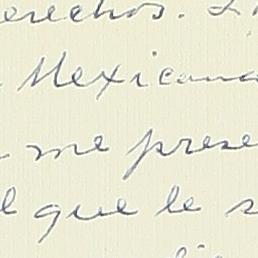 derechos.
Mexicana
me prese
que le s